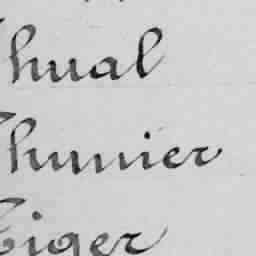 Thual
Thunier
Tiger